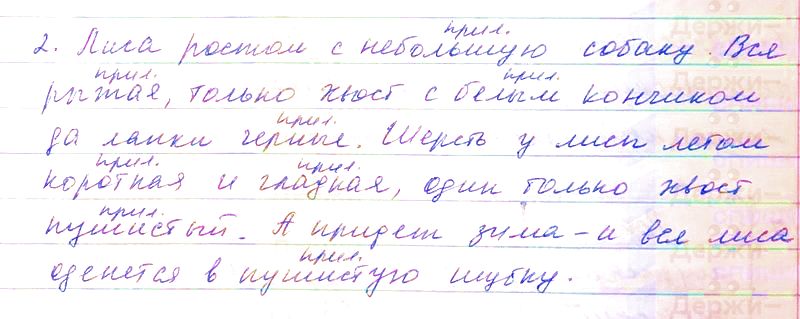 прил.
2. Лиса ростом с небольшую собаку. Вся
прил. прил.
рыжая, только хвост с белым кончиком
прил.
да лапки черные. Шерсть у лисы летом
прил. прил.
короткая и гладкая, один только хвост
прил.
пушистый. А придет зима – и вся лиса
прил.
оденется в пушистую шубку.
Держи-
Держи-
Держи-
Держи-
Держи-